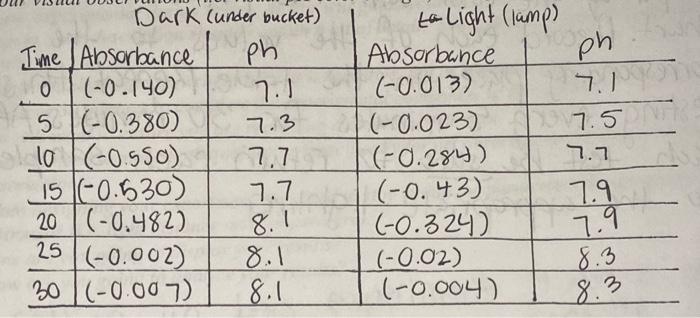 Dark (under bucket) Light (lamp)
Time Absorbance ph Absorbance ph
0 (-0.140) 7.1 (-0.013) 7.1
5 (-0.380) 7.3 (-0.023) 7.5
10 (-0.550) 7.7 (-0.284) 7.7
15 (-0.530) 7.7 (-0.43) 7.9
20 (-0.482) 8.1 (-0.324) 7.9
25 (-0.002) 8.1 (-0.02) 8.3
30 (-0.007) 8.1 (-0.004) 8.3